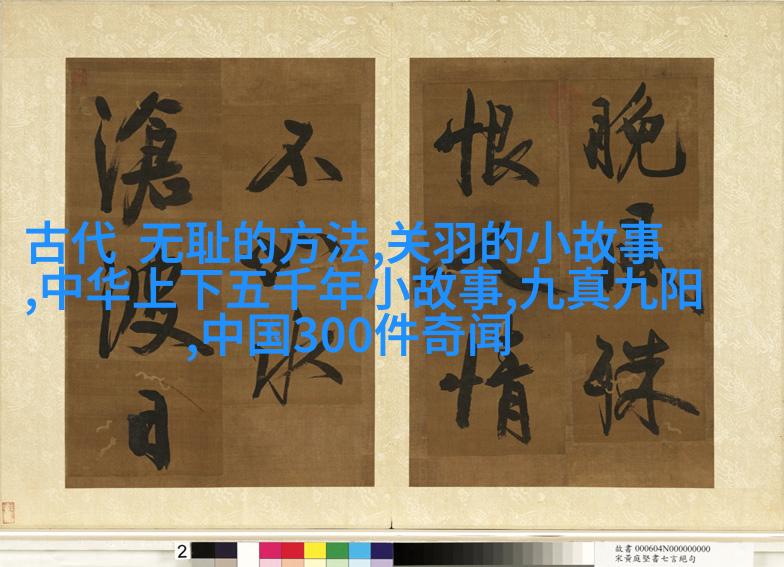 晚殊
恨人情
不如水
滄波日
古代 无耻的方法,关羽的小故事
,中华上下五千年小故事,九真九阳
,中国300件奇闻
2
故書 000604N000000000
宋黃庭堅書七言絕句